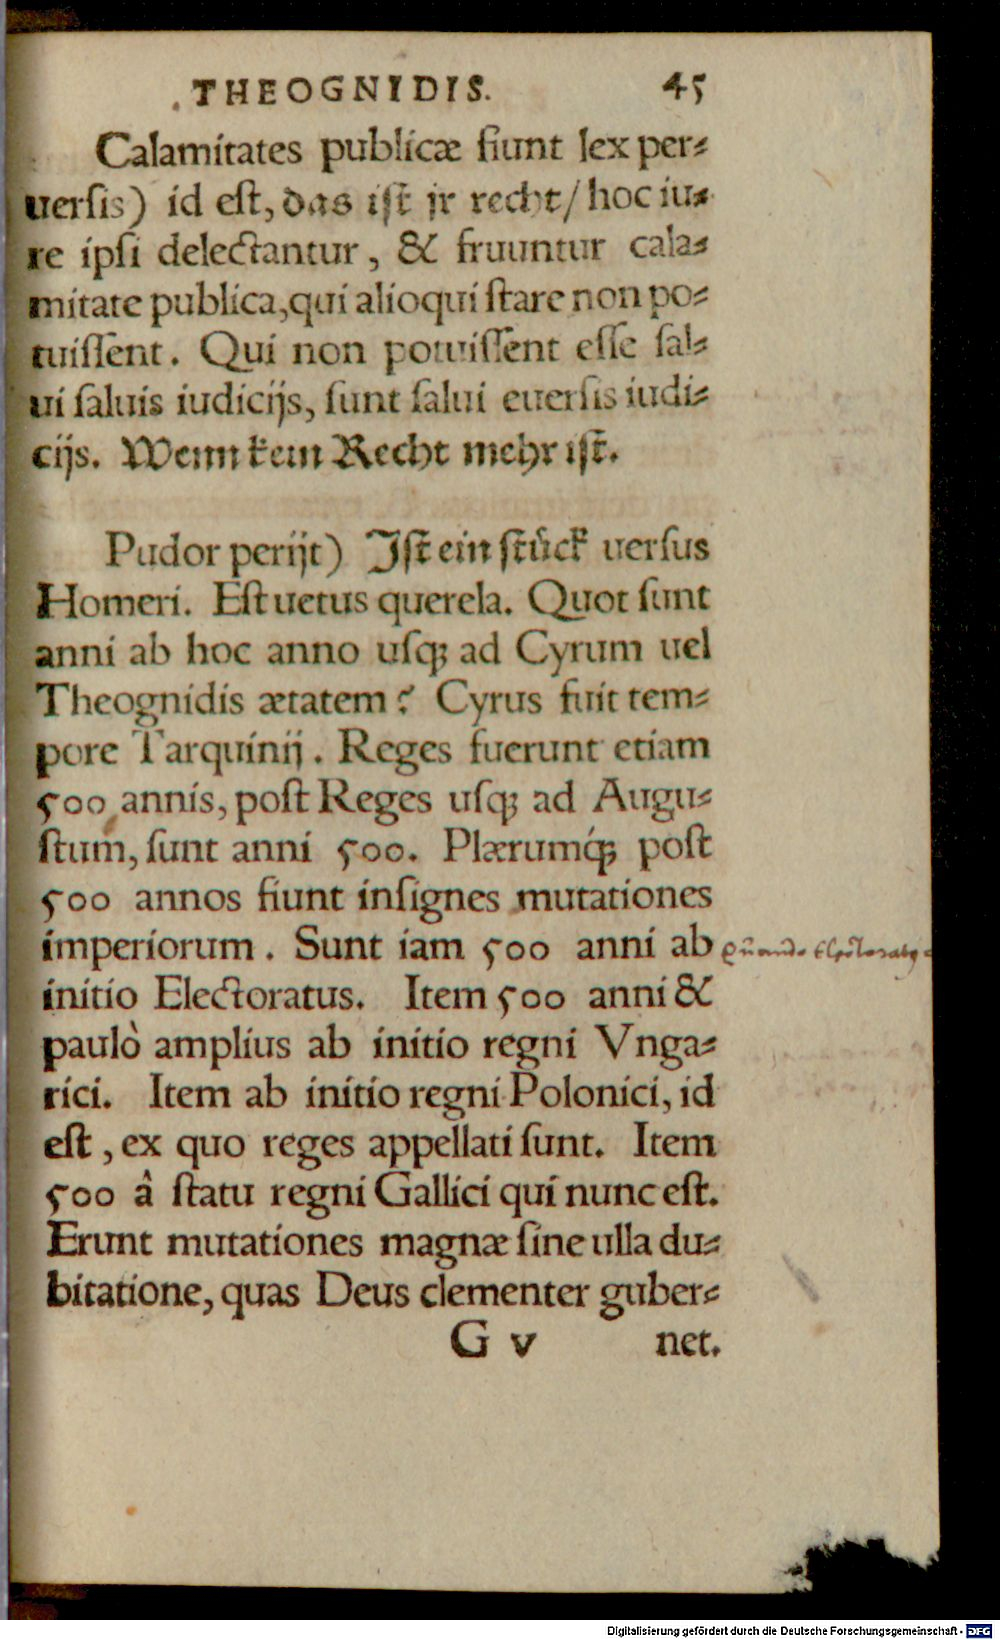 THEOGNIDIS. 45
Calamitates publicæ fiunt lex per⸗
uersis) id est, das ist jr recht/ hoc iu⸗
re ipsi delectantur, & fruuntur cala⸗
mitate publica, qui alioqui stare non po⸗
tuissent. Qui non potuissent esse sal⸗
ui saluis iudicijs, sunt salui euersis iudi⸗
cijs. Wenn kein Recht mehr ist.
Pudor perijt) Jst ein stuͤck uersus
Homeri. Est uetus querela. Quot sunt
anni ab hoc anno usq; ad Cyrum uel
Theognidis ætatem? Cyrus fuit tem⸗
pore Tarquinij. Reges fuerunt etiam
500 annis, post Reges usq; ad Augu⸗
stum, sunt anni 500. Plærumq́; post
500 annos fiunt insignes mutationes
imperiorum. Sunt iam 500 anni ab
initio Electoratus. Item 500 anni &
paulò amplius ab initio regni Vnga⸗
rici. Item ab initio regni Polonici, id
est, ex quo reges appellati sunt. Item
500 â statu regni Gallici qui nunc est.
Erunt mutationes magnæ sine ulla du⸗
bitatione, quas Deus clementer guber⸗
G v net.
Digitalisierung gefördert durch die Deutsche Forschungsgemeinschaft - DFG